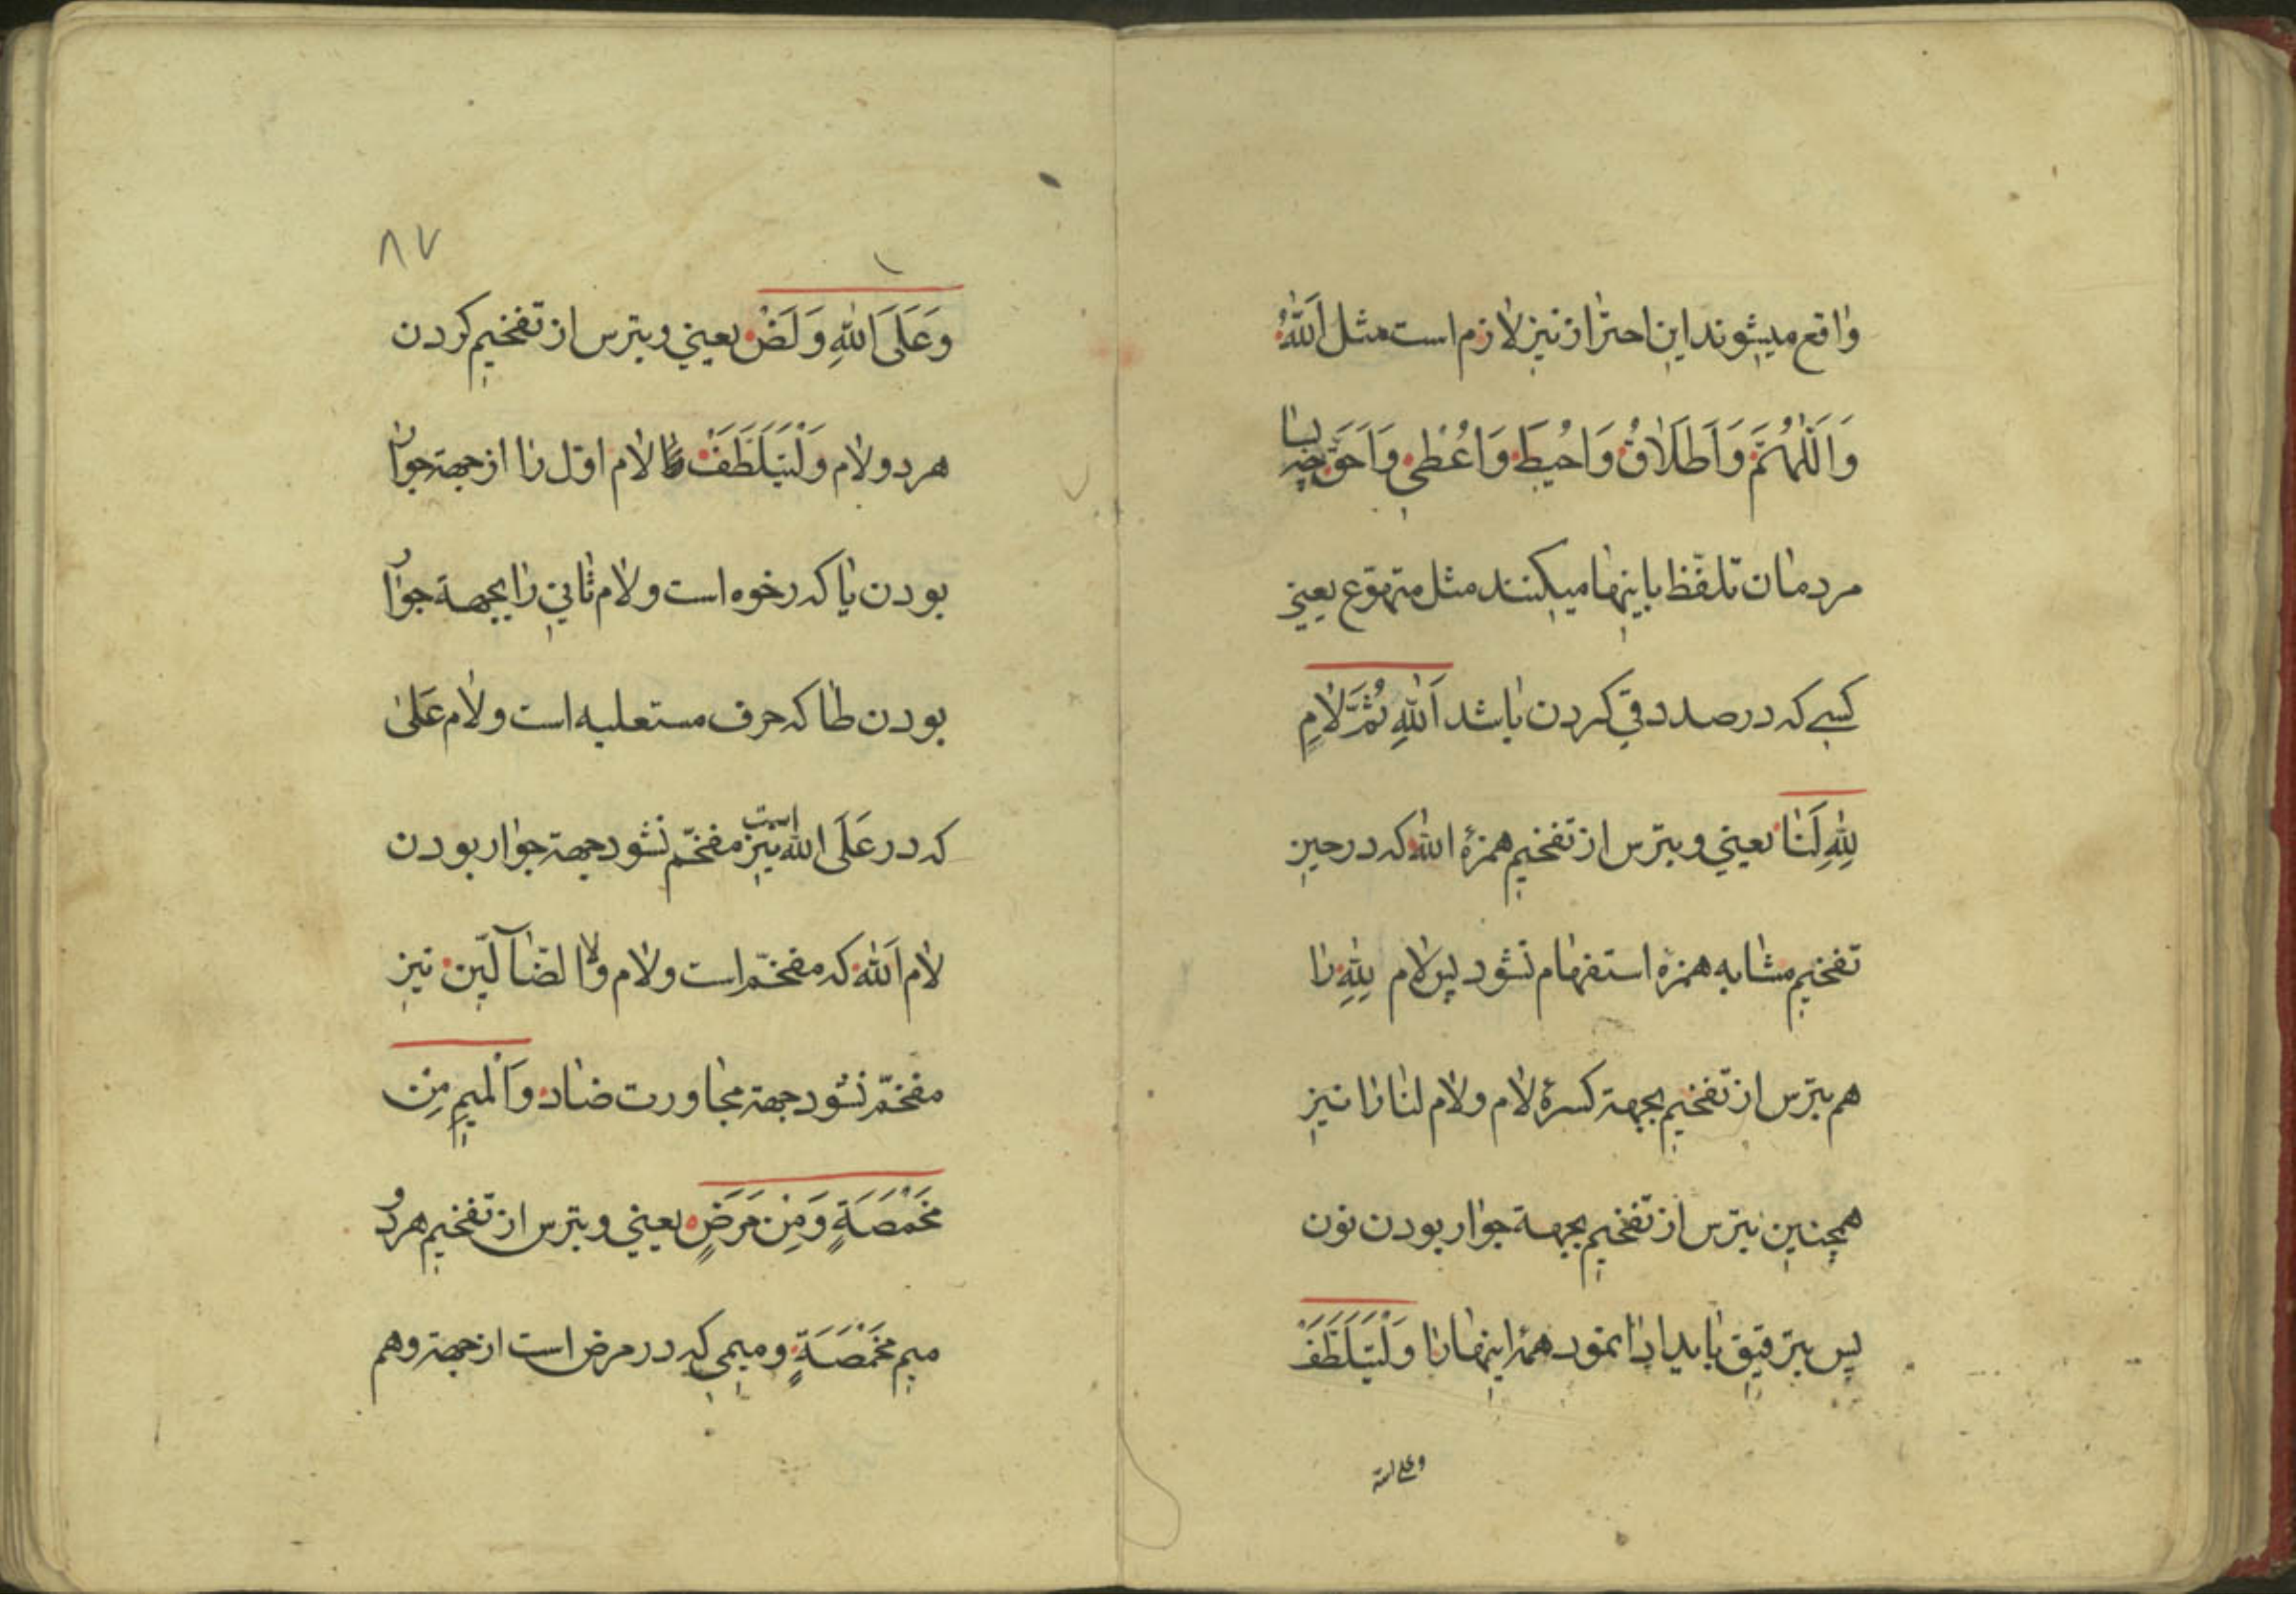 واقع میشوند این احتراز نیز لازم است مثل اَللهُ
وَاَللّٰهُمَّ وَاَطَلَاقُ وَاُحیطَ وَاُعْطی وَاَحَقّ چه بسا
مردمان تلفّظ باینها میکنند مثل متهوّع یعنی
کسی که در صدد قی کردن باشد اَللهِ ثُمَّ لَامِ
لِلّٰهِ لَنَا یعنی و بترس از تفخیم همزهٔ الله که در حین
تفخیم مشابه همزه استفهام نشود پس لام لِلّٰهِ را
هم بترس از تفخیم بجهة کسرهٔ لام و لام لنا را نیز
همچنین بترس از تفخیم بجهة جوار بودن نون
پس بترقیق باید ادا نمود همهٔ اینها را وَلْیَتَلَطَّفْ
وعلی الله
۸۷
وَعَلَی اللهِ وَلَضْ یعنی و بترس از تفخیم کردن
هر دو لام وَلْیَتَلَطَّفْ لام اوّل را از جهة جوار
بودن یا که رخوه است و لام ثانی را بجهة جوار
بودن طا که حرف مستعلیه است و لام عَلَی
که در عَلَی الله است نیز مفخّم نشود جهة جوار بودن
لام اَلله که مفخّم است و لام ولا الضّآلّین نیز
مفخّم نشود جهة مجاورت ضاد وَالْمیمِ مِنْ
مَخْمَصَةٍ وَمِنْ مَرَضٍ یعنی و بترس از تفخیم هر دو
میم مَخْمَصَةٍ و میمی که در مرض است از جهة وهم